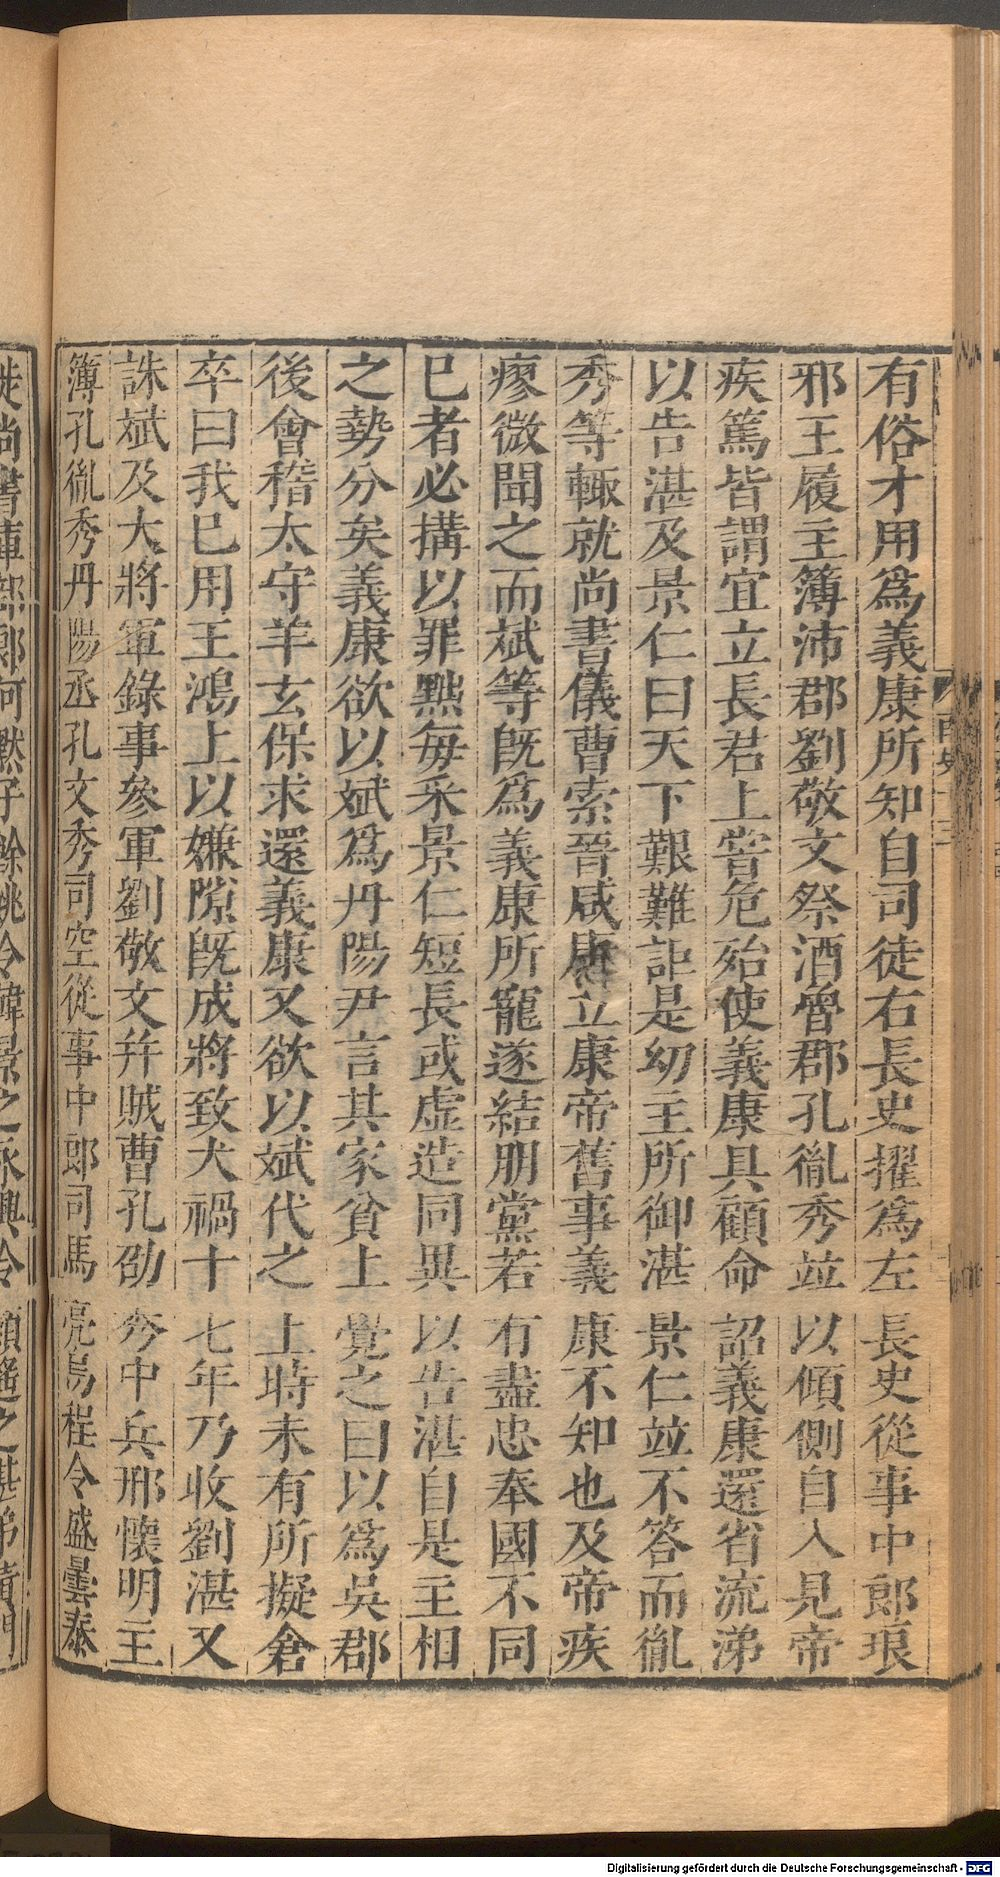 有俗才用爲義康所知自司徒右長史擢爲左長史從事中郎琅
邪王履主簿沛郡劉敬文祭酒魯郡孔胤秀並以傾側自入見帝
疾篤皆謂宜立長君上甞危殆使義康具顧命詔義康還省流涕
以告湛及景仁曰天下艱難詎是幼主所御湛景仁並不答而胤
秀等輙就尚書儀曹索晉咸康立康帝舊事義康不知也及帝疾
瘳微聞之而斌等旣爲義康所寵遂結朋黨若有盡忠奉國不同
巳者必搆以罪黜每釆景仁短長或虛造同異以告湛自是主相
之勢分矣義康欲以斌爲丹陽尹言其家貧上覺之曰以爲吳郡
後會稽太守羊玄保求還義康又欲以斌代之上時未有所擬倉
卒曰我巳用王鴻上以嫌隙旣成將致大禍十七年乃收劉湛又
誅斌及大將軍錄事參軍劉敬文并賊曹孔劭秀中兵邢懷明主
簿孔胤秀丹陽丞孔文秀司空從事中郎司馬亮烏程令盛曇泰
徙尚書庫部郎何默子餘姚令韓景之永興令顏遙之湛弟黃門
Digitalisierung gefördert durch die Deutsche Forschungsgemeinschaft - DFG